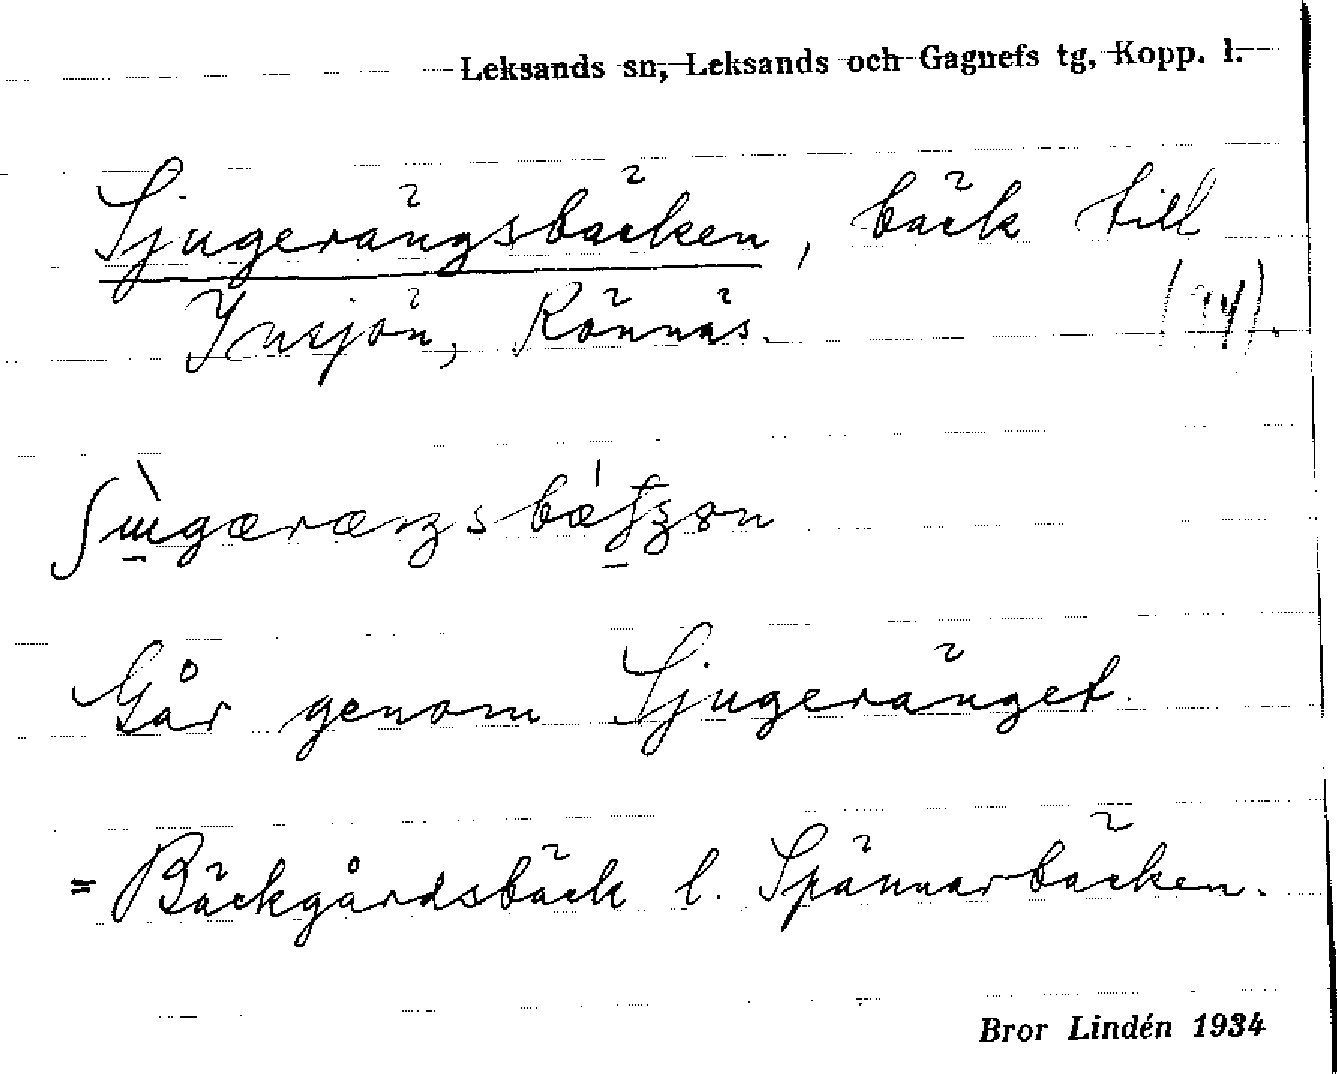 Leksands sn, Leksands och Gagnefs tg, Kopp. l.
Sjugerängsbäcken, bäck till
Insjön, Rönnäs.
Går genom Sjugeränget.
= Bäckgårdsbäck l. Spännarbäcken.
Bror Lindén 1934